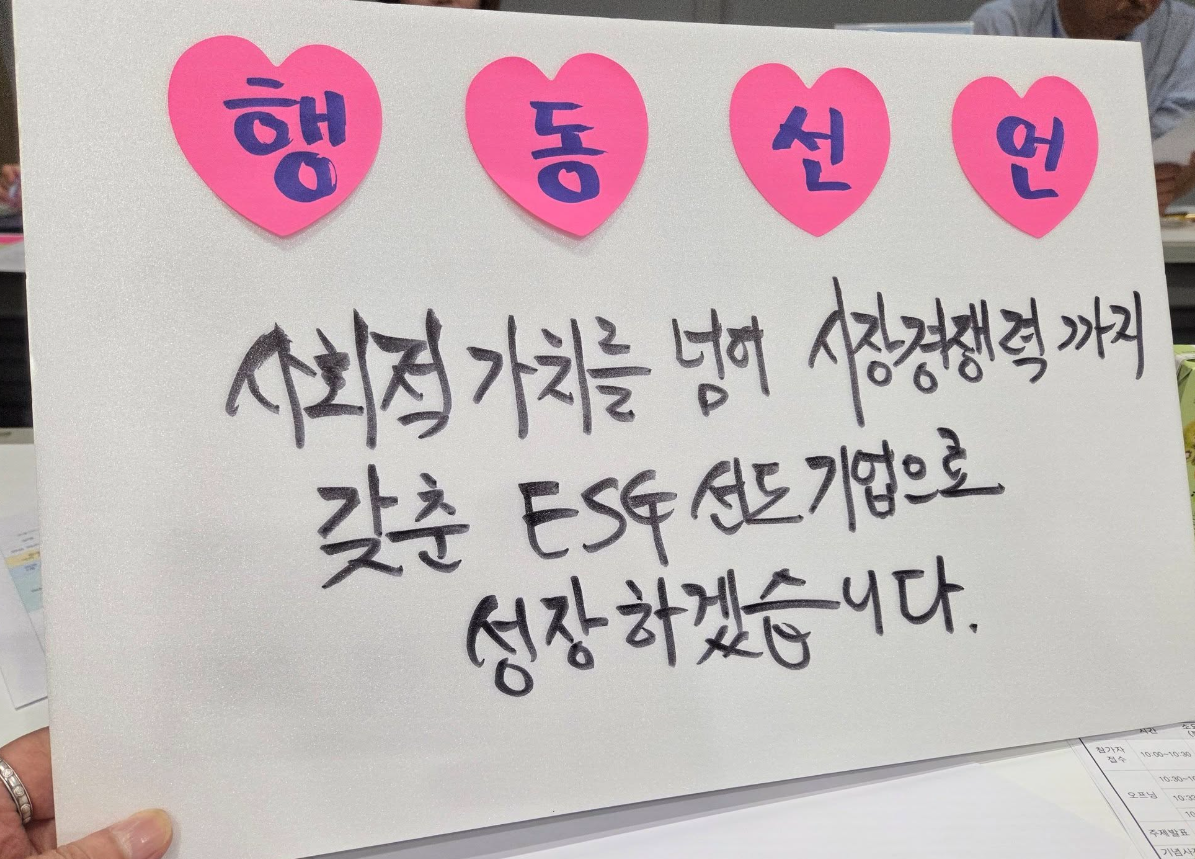 행동선언
사회적 가치를 넘어 시장경쟁력까지
갖춘 ESG 선도기업으로
성장하겠습니다.
시간
참가자
접수
10:00~10:30
오프닝
주제발표